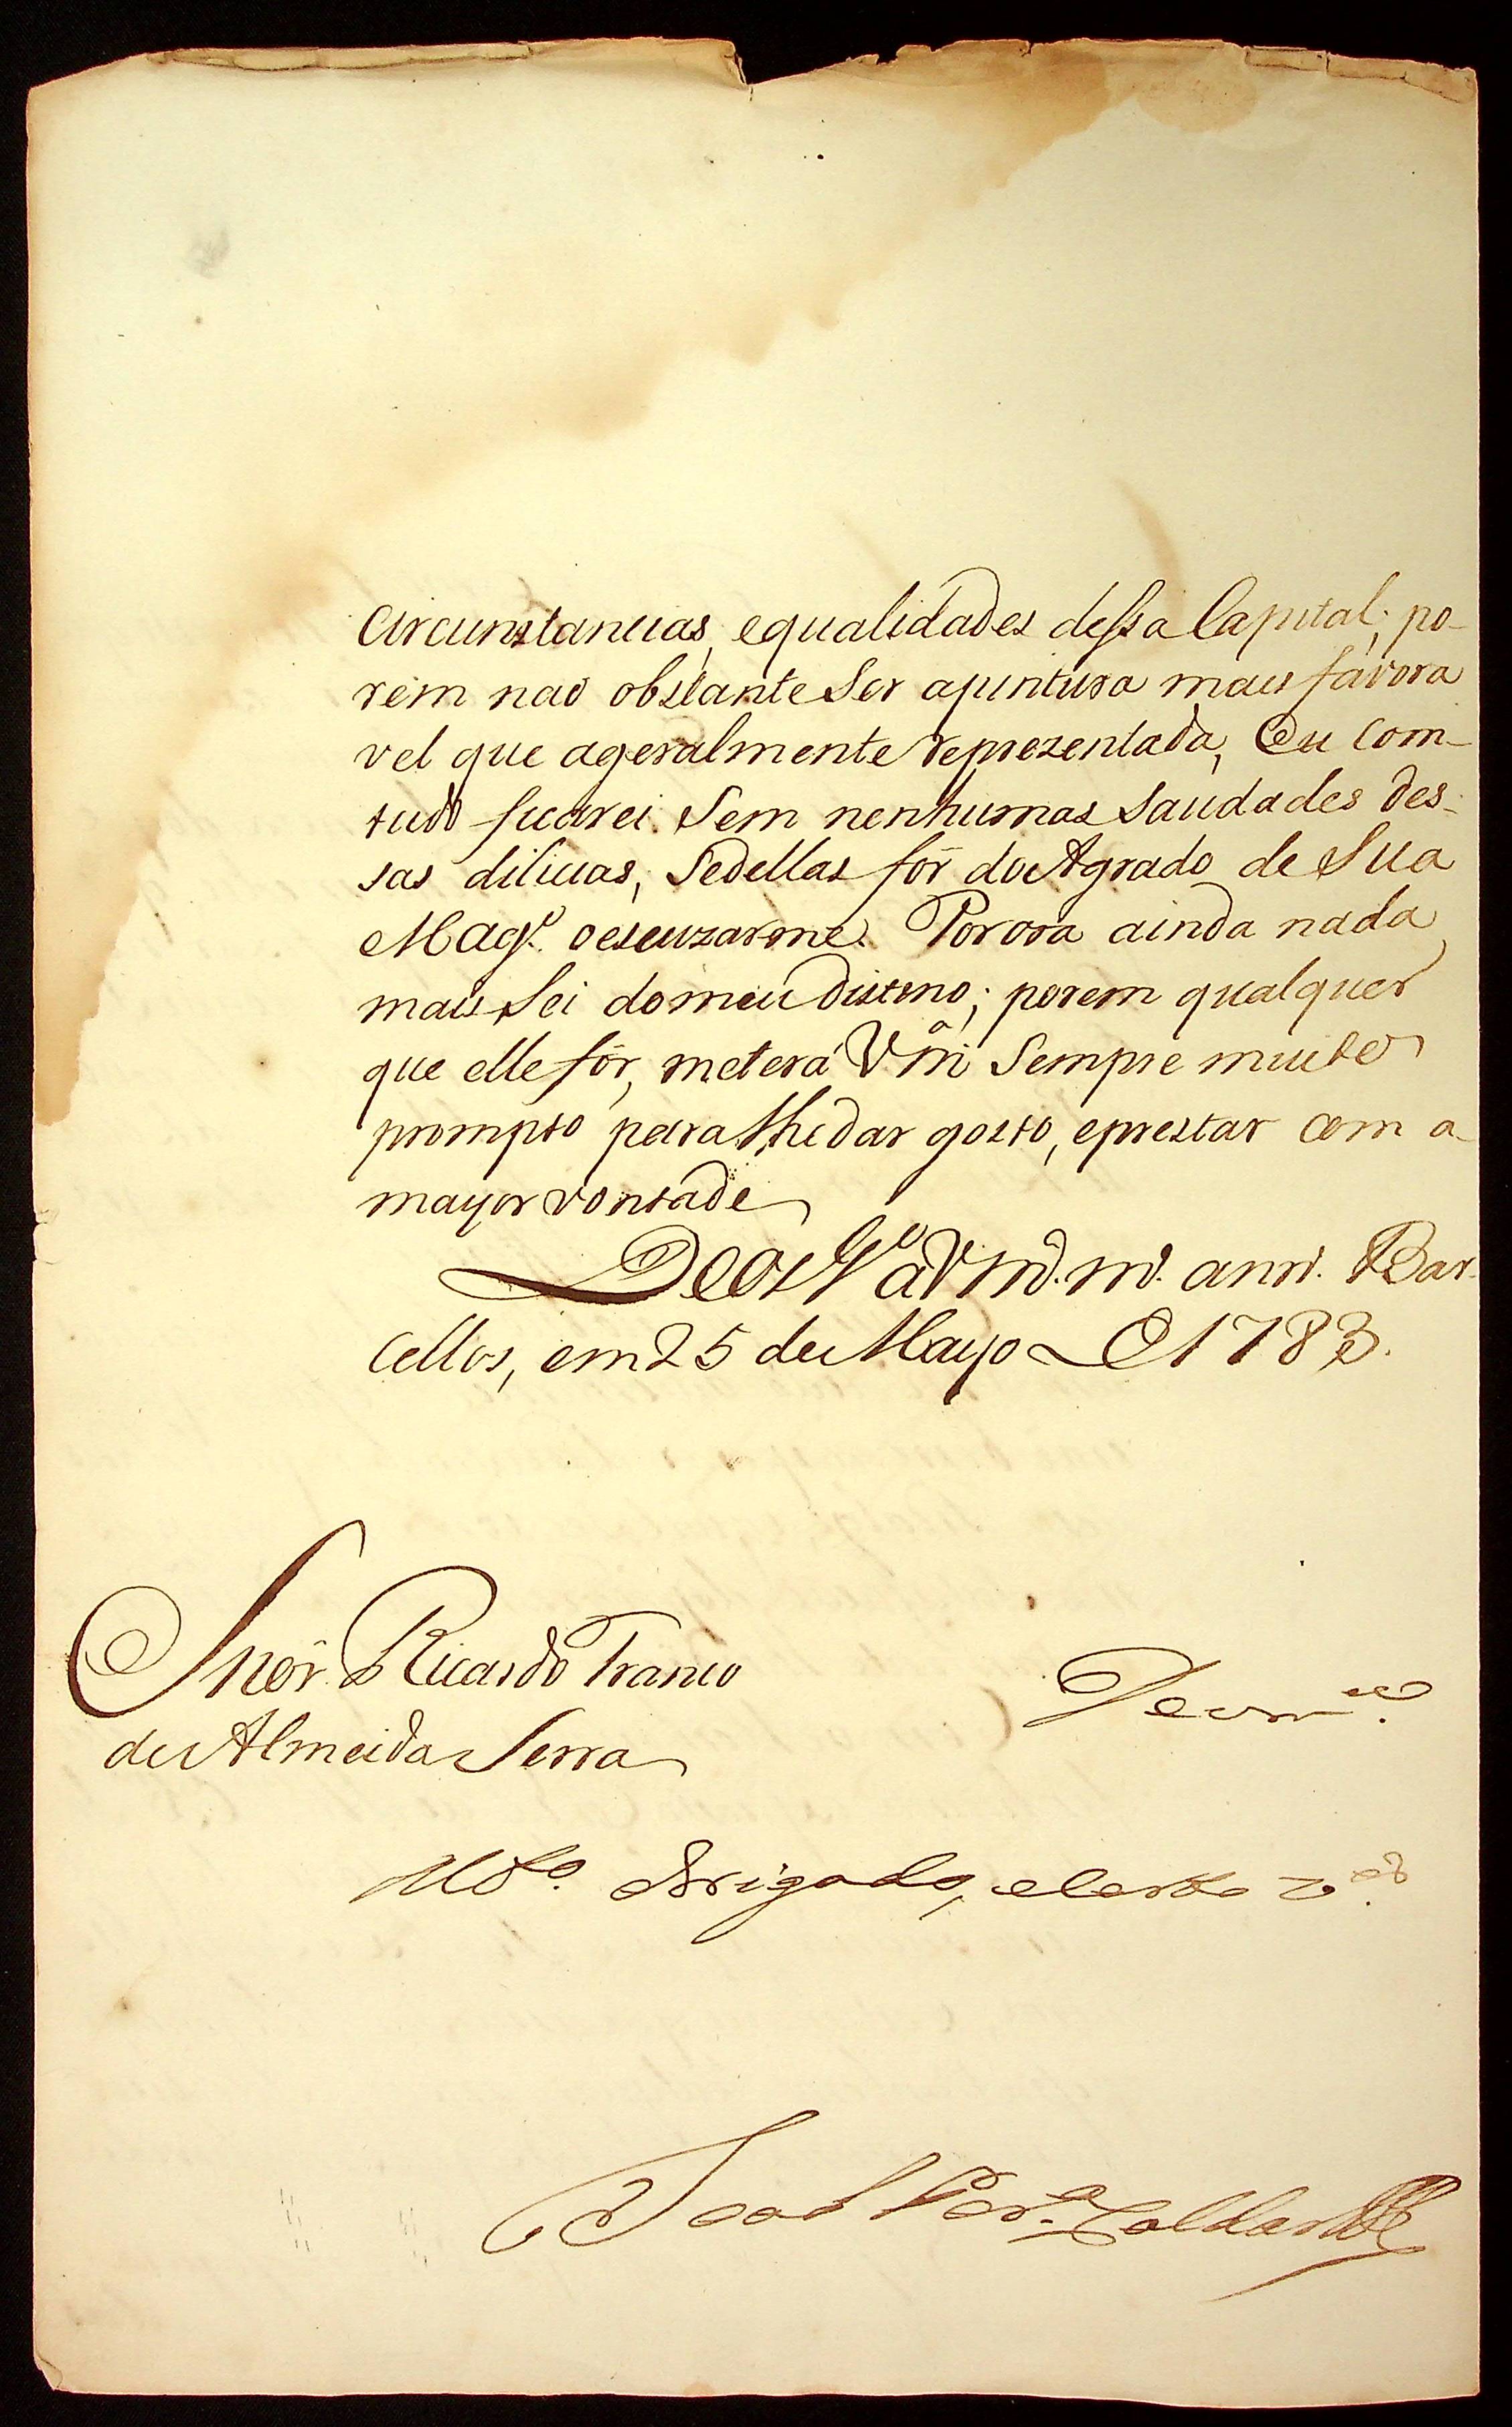 Circunstancias, equalidades dessa Capital; po-
rèm naõ obstante Ser apintura mais favora
vel que ageralmente reprezentada, Eu Com-
tudo ficarei Sem nenhumas Saudades des-
sas dilicias, Sedellas fór do Agrado de Sua
Mag.e oescuzarme. Porora ainda nada
mais Sei domeu distino; porem qualquer
que elle fór, meterá Vm̃ Sempre muito
prompto para lhe dar gosto, eprestar com a
mayor vontade
Deos G.e aVm.ce m.s ann.s Bar-
cellos, em 25 de Mayo de 1783.
Snõr Ricardo Franco
de Almeida Serra
De vm.ce
M.to obrigado, e certo v.or
Joaõ Per.a Caldas